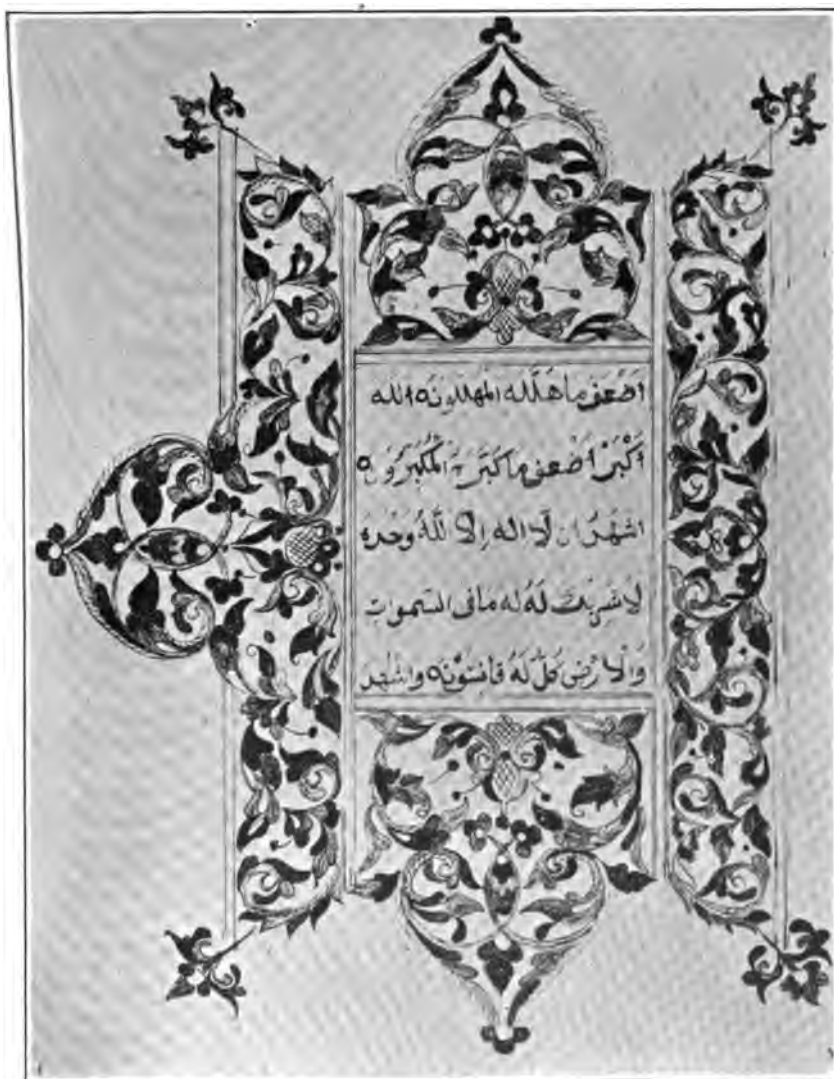 اَضْعَفَ ما هَلَّله المهللونه الله
اَكْبَرْ اَضْعَفَ مَا كَبَّرَهُ الْمُكَبِّرُونَه
اشهدُ ان لَّا اله اِلا للَّهُ وَحْدَهُ
لا شَرِيْكَ لَهُ له ما فى السموات
وَالْارْضِ كُلٌّ لَهُ قانِتُوْنَه واشهد